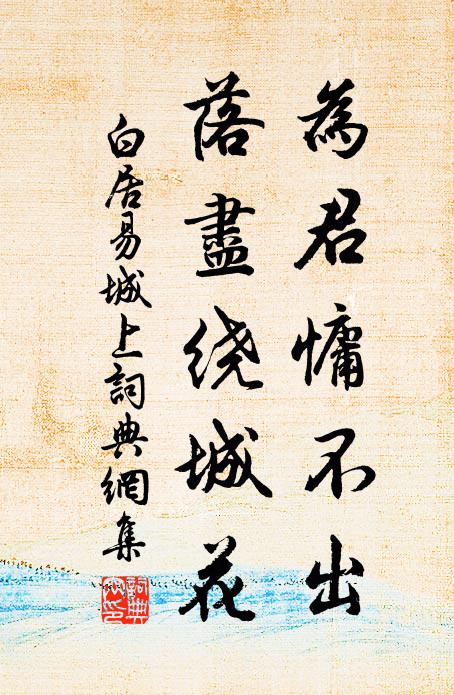 為君慵不出
落盡绕城花
白居易城上詞典網集